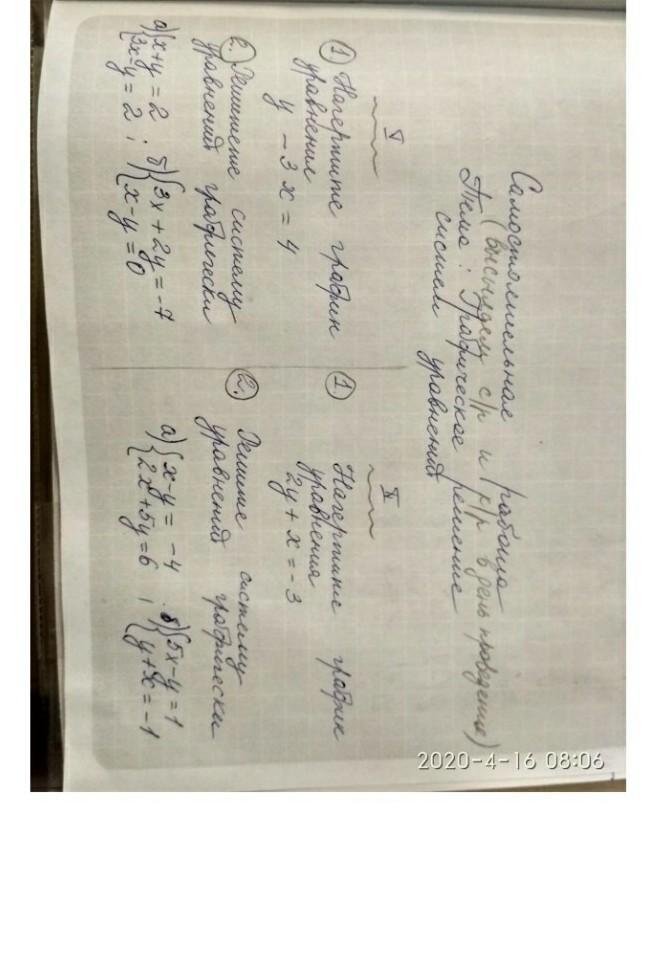 Самостоятельная работа
(высылаем с/р и к/р в день проведения)
Тема: Графическое решение
систем уравнений
I
① Начертите график
уравнения
y - 3x = 4
②. Решите систему
уравнений графически
а) { x+y = 2
3x-y = 2 ; б) { 3x + 2y = -7
x - y = 0
II
① Начертите график
уравнения
2y + x = -3
②. Решите систему
уравнений графически
а) { x - y = -4
2x + 5y = 6 ; б) { 5x - y = 1
y + x = -1
2020-4-16 08:06